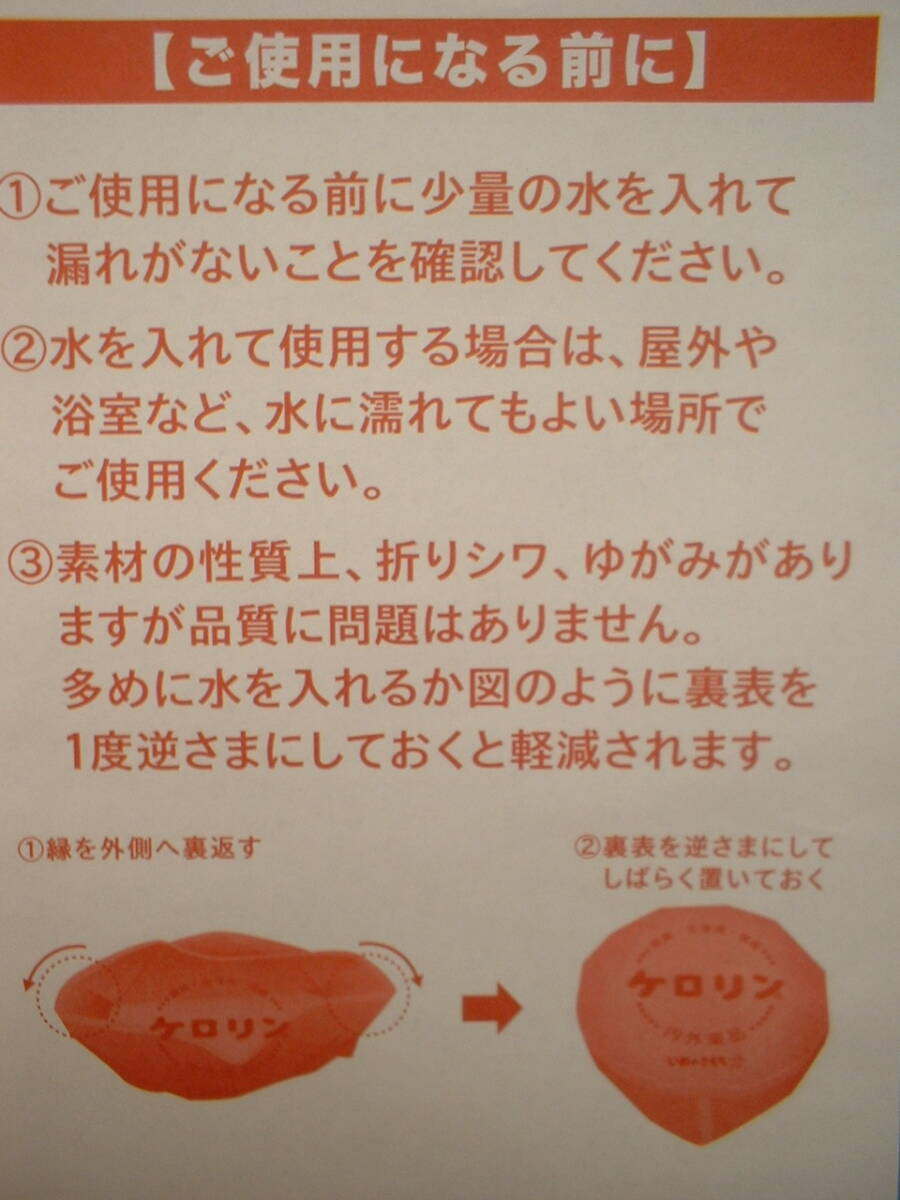 【ご使用になる前に】
①ご使用になる前に少量の水を入れて
漏れがないことを確認してください。
②水を入れて使用する場合は、屋外や
浴室など、水に濡れてもよい場所で
ご使用ください。
③素材の性質上、折りシワ、ゆがみがあり
ますが品質に問題はありません。
多めに水を入れるか図のように裏表を
1度逆さまにしておくと軽減されます。
①縁を外側へ裏返す
②裏表を逆さまにして
しばらく置いておく
ケロリン
ケロリン
内外薬品